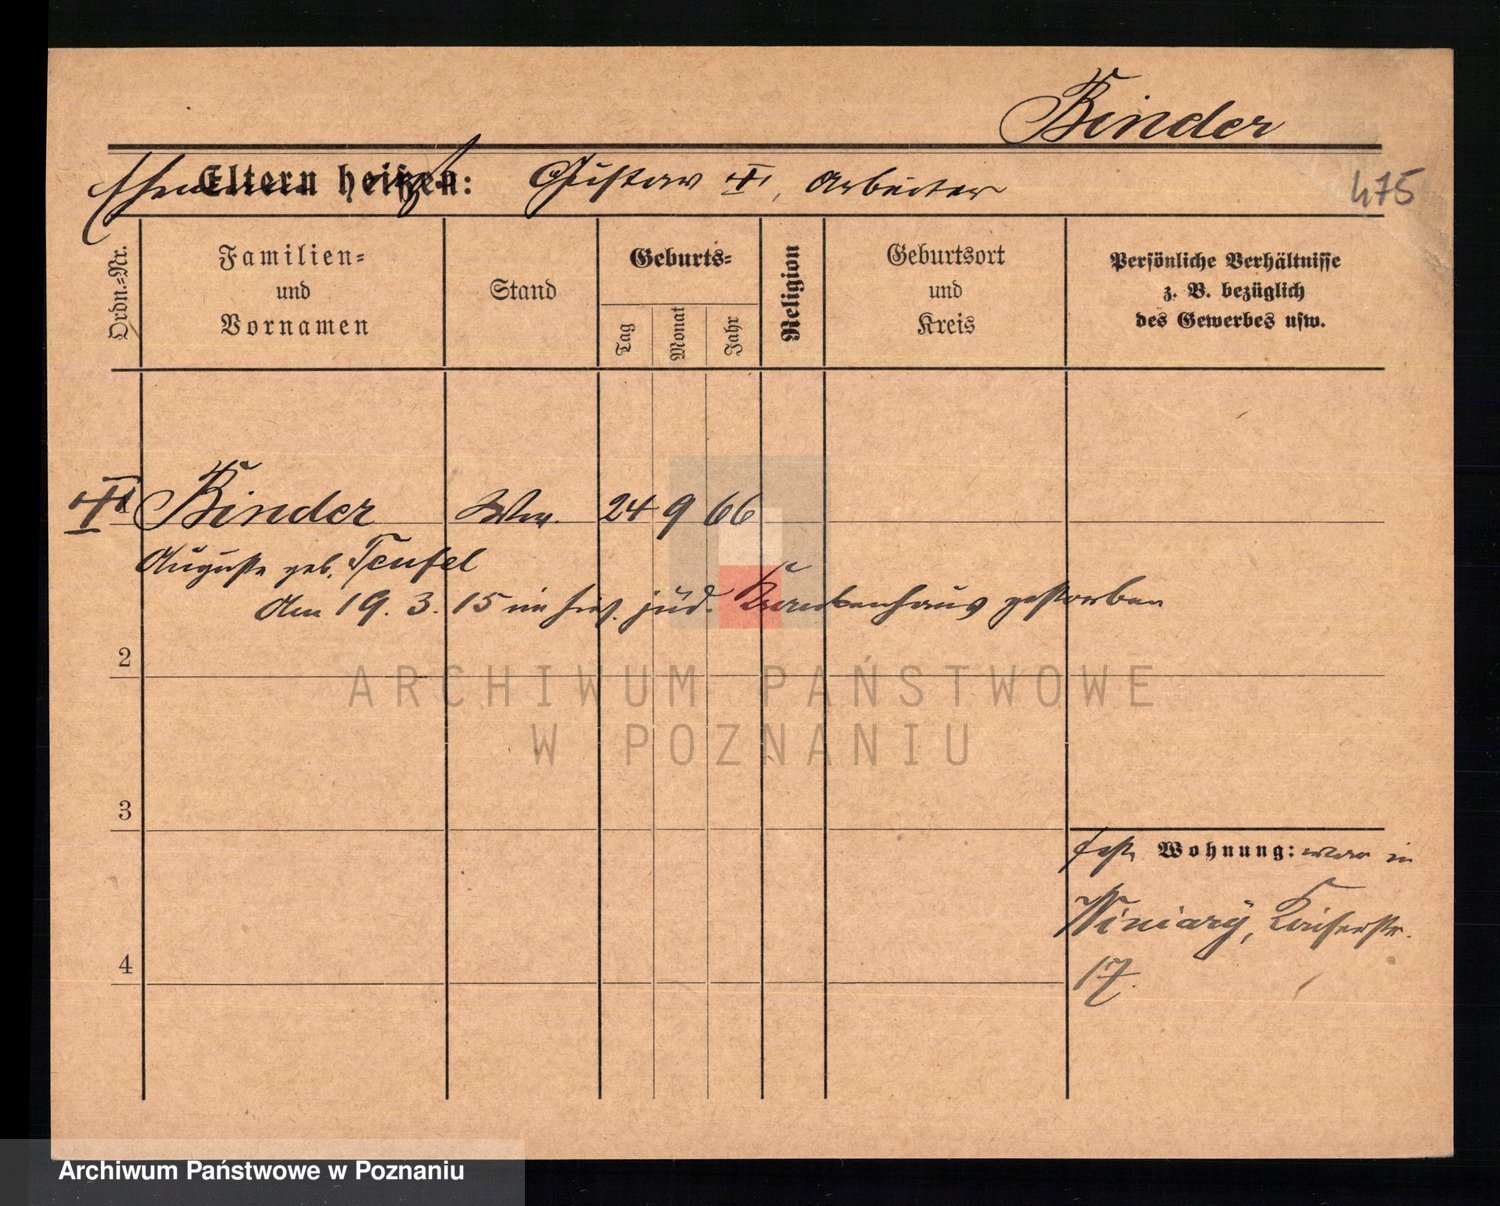 Binder
Ehemann hieß Eltern heißen: Gustav ☩, Arbeiter
475
Ordn.-Nr.
Familien-
und
Vornamen
Stand
Geburts-
Tag
Monat
Jahr
Religion
Geburtsort
und
Kreis
Persönliche Verhältnisse
z. B. bezüglich
des Gewerbes usw.
1 Binder Ww. 24 9 66
Auguste geb. Teufel
Am 19. 3. 15 im hies. jüd. Krankenhaus gestorben
2
ARCHIWUM PAŃSTWOWE
W POZNANIU
3
Wohnung: war in
Winiary, Kaiserstr.
17.
4
Archiwum Państwowe w Poznaniu